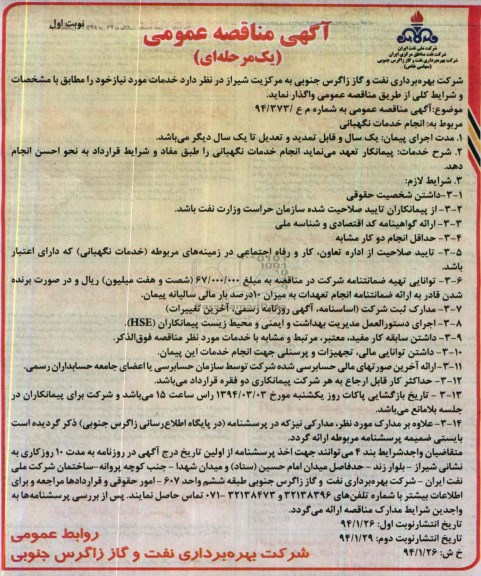 نوبت اول
آگهی مناقصه عمومی
(یک‌مرحله‌ای)
شرکت ملی نفت ایران
شرکت نفت مناطق مرکزی ایران
شرکت بهره‌برداری نفت و گاز زاگرس جنوبی
(سهامی خاص)
شرکت بهره‌برداری نفت و گاز زاگرس جنوبی به مرکزیت شیراز در نظر دارد خدمات مورد نیاز خود را مطابق با مشخصات
و شرایط کلی از طریق مناقصه عمومی واگذار نماید.
موضوع:آگهی مناقصه عمومی به شماره م ع /۹۴/۳۷۳
مربوط به: انجام خدمات نگهبانی
۱. مدت اجرای پیمان: یک سال و قابل تمدید و تعدیل تا یک سال دیگر می‌باشد.
۲. شرح خدمات: پیمانکار تعهد می‌نماید انجام خدمات نگهبانی را طبق مفاد و شرایط قرارداد به نحو احسن انجام
دهد.
۳. شرایط لازم:
۳-۱-داشتن شخصیت حقوقی
۳-۲- از پیمانکاران تایید صلاحیت شده سازمان حراست وزارت نفت باشد.
۳-۳- ارائه گواهینامه کد اقتصادی و شناسه ملی
۳-۴- حداقل انجام دو کار مشابه
۳-۵- تایید صلاحیت از اداره تعاون، کار و رفاه اجتماعی در زمینه‌های مربوطه (خدمات نگهبانی) که دارای اعتبار
باشد.
۳-۶- توانایی تهیه ضمانتنامه شرکت در مناقصه به مبلغ ۶۷/۰۰۰/۰۰۰ (شصت و هفت میلیون) ریال و در صورت برنده
شدن قادر به ارائه ضمانتنامه انجام تعهدات به میزان ۱۰درصد بار مالی سالیانه پیمان.
۳-۷- مدارک ثبت شرکت (اساسنامه، آگهی روزنامه رسمی، آخرین تغییرات)
۳-۸- اجرای دستورالعمل مدیریت بهداشت و ایمنی و محیط زیست پیمانکاران (HSE).
۳-۹- داشتن سابقه کار مفید، معتبر، مرتبط و مشابه با خدمات مورد نظر مناقصه فوق‌الذکر.
۳-۱۰- داشتن توانایی مالی، تجهیزات و پرسنلی جهت انجام خدمات این پیمان.
۳-۱۱- ارائه آخرین صورتهای مالی حسابرسی شده شرکت توسط سازمان حسابرسی یا اعضای جامعه حسابداران رسمی.
۳-۱۲- حداکثر کار قابل ارجاع به هر شرکت پیمانکاری دو فقره قرارداد می‌باشد.
۳-۱۳ - تاریخ بازگشایی پاکات روز یکشنبه مورخ ۱۳۹۴/۰۳/۰۳ راس ساعت ۱۵ می‌باشد و شرکت برای پیمانکاران در
جلسه بلامانع می‌باشد.
۳-۱۴- علاوه بر مدارک مورد نظر، مدارکی نیز که در پرسشنامه (در پایگاه اطلاع‌رسانی زاگرس جنوبی) ذکر گردیده است
بایستی ضمیمه پرسشنامه مربوطه ارائه گردد.
متقاضیان واجدشرایط بند ۳ می‌توانند جهت اخذ پرسشنامه از اولین تاریخ درج آگهی در روزنامه به مدت ۱۰ روزکاری به
نشانی شیراز - بلوار زند - حدفاصل میدان امام حسین (ستاد) و میدان شهدا - جنب کوچه پروانه -ساختمان شرکت ملی
نفت ایران - شرکت بهره‌برداری نفت و گاز زاگرس جنوبی طبقه ششم واحد ۶۰۷ - امور حقوقی و قراردادها مراجعه و برای
اطلاعات بیشتر با شماره تلفن‌های ۳۲۱۳۸۳۹۶ و ۳۲۱۳۸۴۷۳ -۰۷۱ تماس حاصل نمایند. پس از بررسی پرسشنامه‌ها به
واجدین شرایط مدارک مناقصه ارائه می‌گردد.
تاریخ انتشارنوبت اول: ۹۴/۱/۲۶
تاریخ انتشارنوبت دوم: ۹۴/۱/۲۹
خ ش: ۹۴/۱/۲۶
روابط عمومی
شرکت بهره‌برداری نفت و گاز زاگرس جنوبی